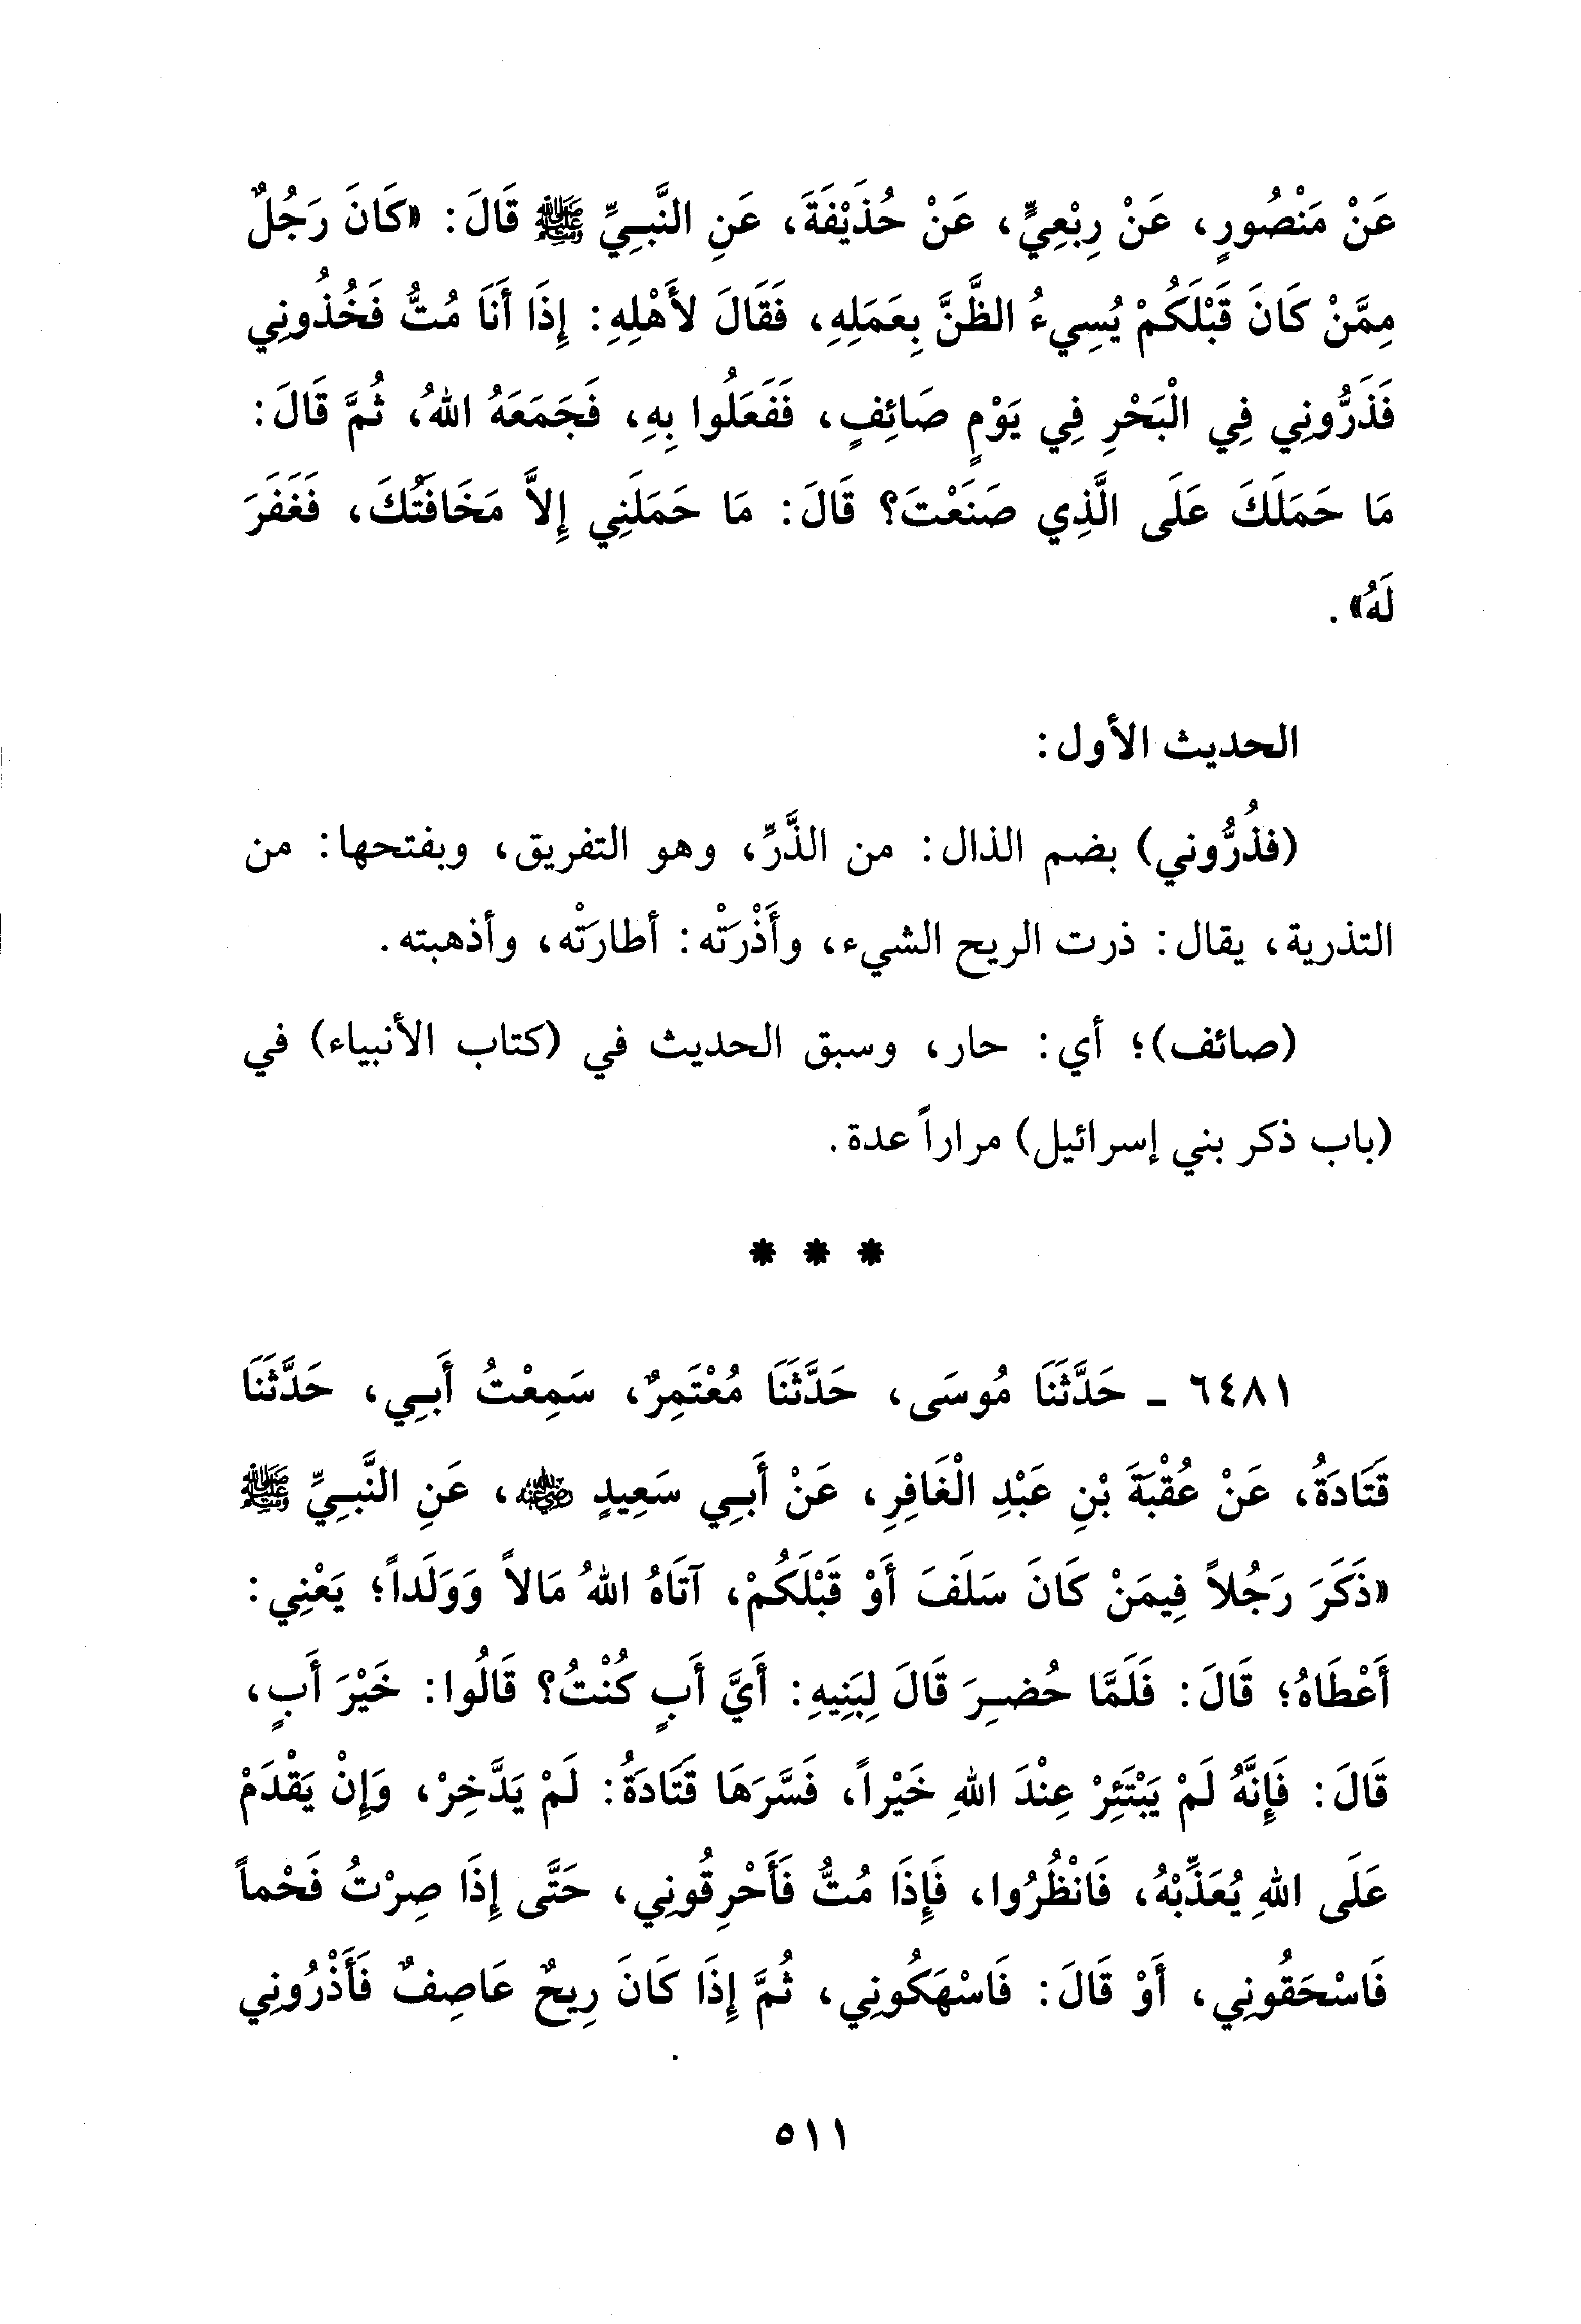 عَنْ مَنْصُورٍ، عَنْ رِبْعِيٍّ، عَنْ حُذَيْفَةَ، عَنِ النَّبِيِّ ﷺ قَالَ: «كَانَ رَجُلٌ
مِمَّنْ كَانَ قَبْلَكُمْ يُسِيءُ الظَّنَّ بِعَمَلِهِ، فَقَالَ لأَهْلِهِ: إِذَا أَنَا مُتُّ فَخُذُونِي
فَذَرُّونِي فِي الْبَحْرِ فِي يَوْمٍ صَائِفٍ، فَفَعَلُوا بِهِ، فَجَمَعَهُ اللهُ، ثُمَّ قَالَ:
مَا حَمَلَكَ عَلَى الَّذِي صَنَعْتَ؟ قَالَ: مَا حَمَلَنِي إِلاَّ مَخَافَتُكَ، فَغَفَرَ
لَهُ».
الحديث الأول:
(فذُرُّوني) بضم الذال: من الذَّرِّ، وهو التفريق، وبفتحها: من
التذرية، يقال: ذرت الريح الشيء، وأَذْرَتْه: أطارَتْه، وأذهبته.
(صائف)؛ أي: حار، وسبق الحديث في (كتاب الأنبياء) في
(باب ذكر بني إسرائيل) مراراً عدة.
* * *
٦٤٨١ - حَدَّثَنَا مُوسَى، حَدَّثَنَا مُعْتَمِرٌ، سَمِعْتُ أَبِي، حَدَّثَنَا
قَتَادَةُ، عَنْ عُقْبَةَ بْنِ عَبْدِ الْغَافِرِ، عَنْ أَبِي سَعِيدٍ رضي الله عنه، عَنِ النَّبِيِّ ﷺ
«ذَكَرَ رَجُلاً فِيمَنْ كَانَ سَلَفَ أَوْ قَبْلَكُمْ، آتَاهُ اللهُ مَالاً وَوَلَداً؛ يَعْنِي:
أَعْطَاهُ؛ قَالَ: فَلَمَّا حُضِرَ قَالَ لِبَنِيهِ: أَيَّ أَبٍ كُنْتُ؟ قَالُوا: خَيْرَ أَبٍ،
قَالَ: فَإِنَّهُ لَمْ يَبْتَئِرْ عِنْدَ اللهِ خَيْراً، فَسَّرَهَا قَتَادَةُ: لَمْ يَدَّخِرْ، وَإِنْ يَقْدَمْ
عَلَى اللهِ يُعَذِّبْهُ، فَانْظُرُوا، فَإِذَا مُتُّ فَأَحْرِقُونِي، حَتَّى إِذَا صِرْتُ فَحْماً
فَاسْحَقُونِي، أَوْ قَالَ: فَاسْهَكُونِي، ثُمَّ إِذَا كَانَ رِيحٌ عَاصِفٌ فَأَذْرُونِي
٥١١